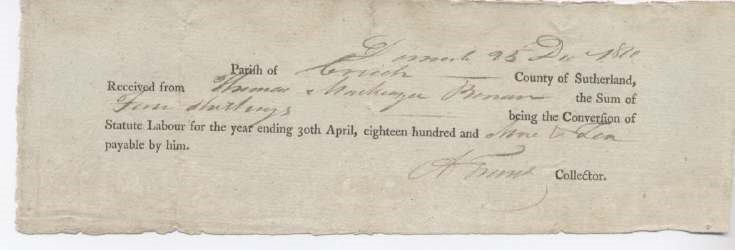 Dornoch 25 Dec 1810
Parish of Criech County of Sutherland,
Received from Thomas Mackenzie the Sum of
Four Shillings being the Conversion of
Statute Labour for the year ending 30th April, eighteen hundred and Nine & Ten
payable by him.
Collector.